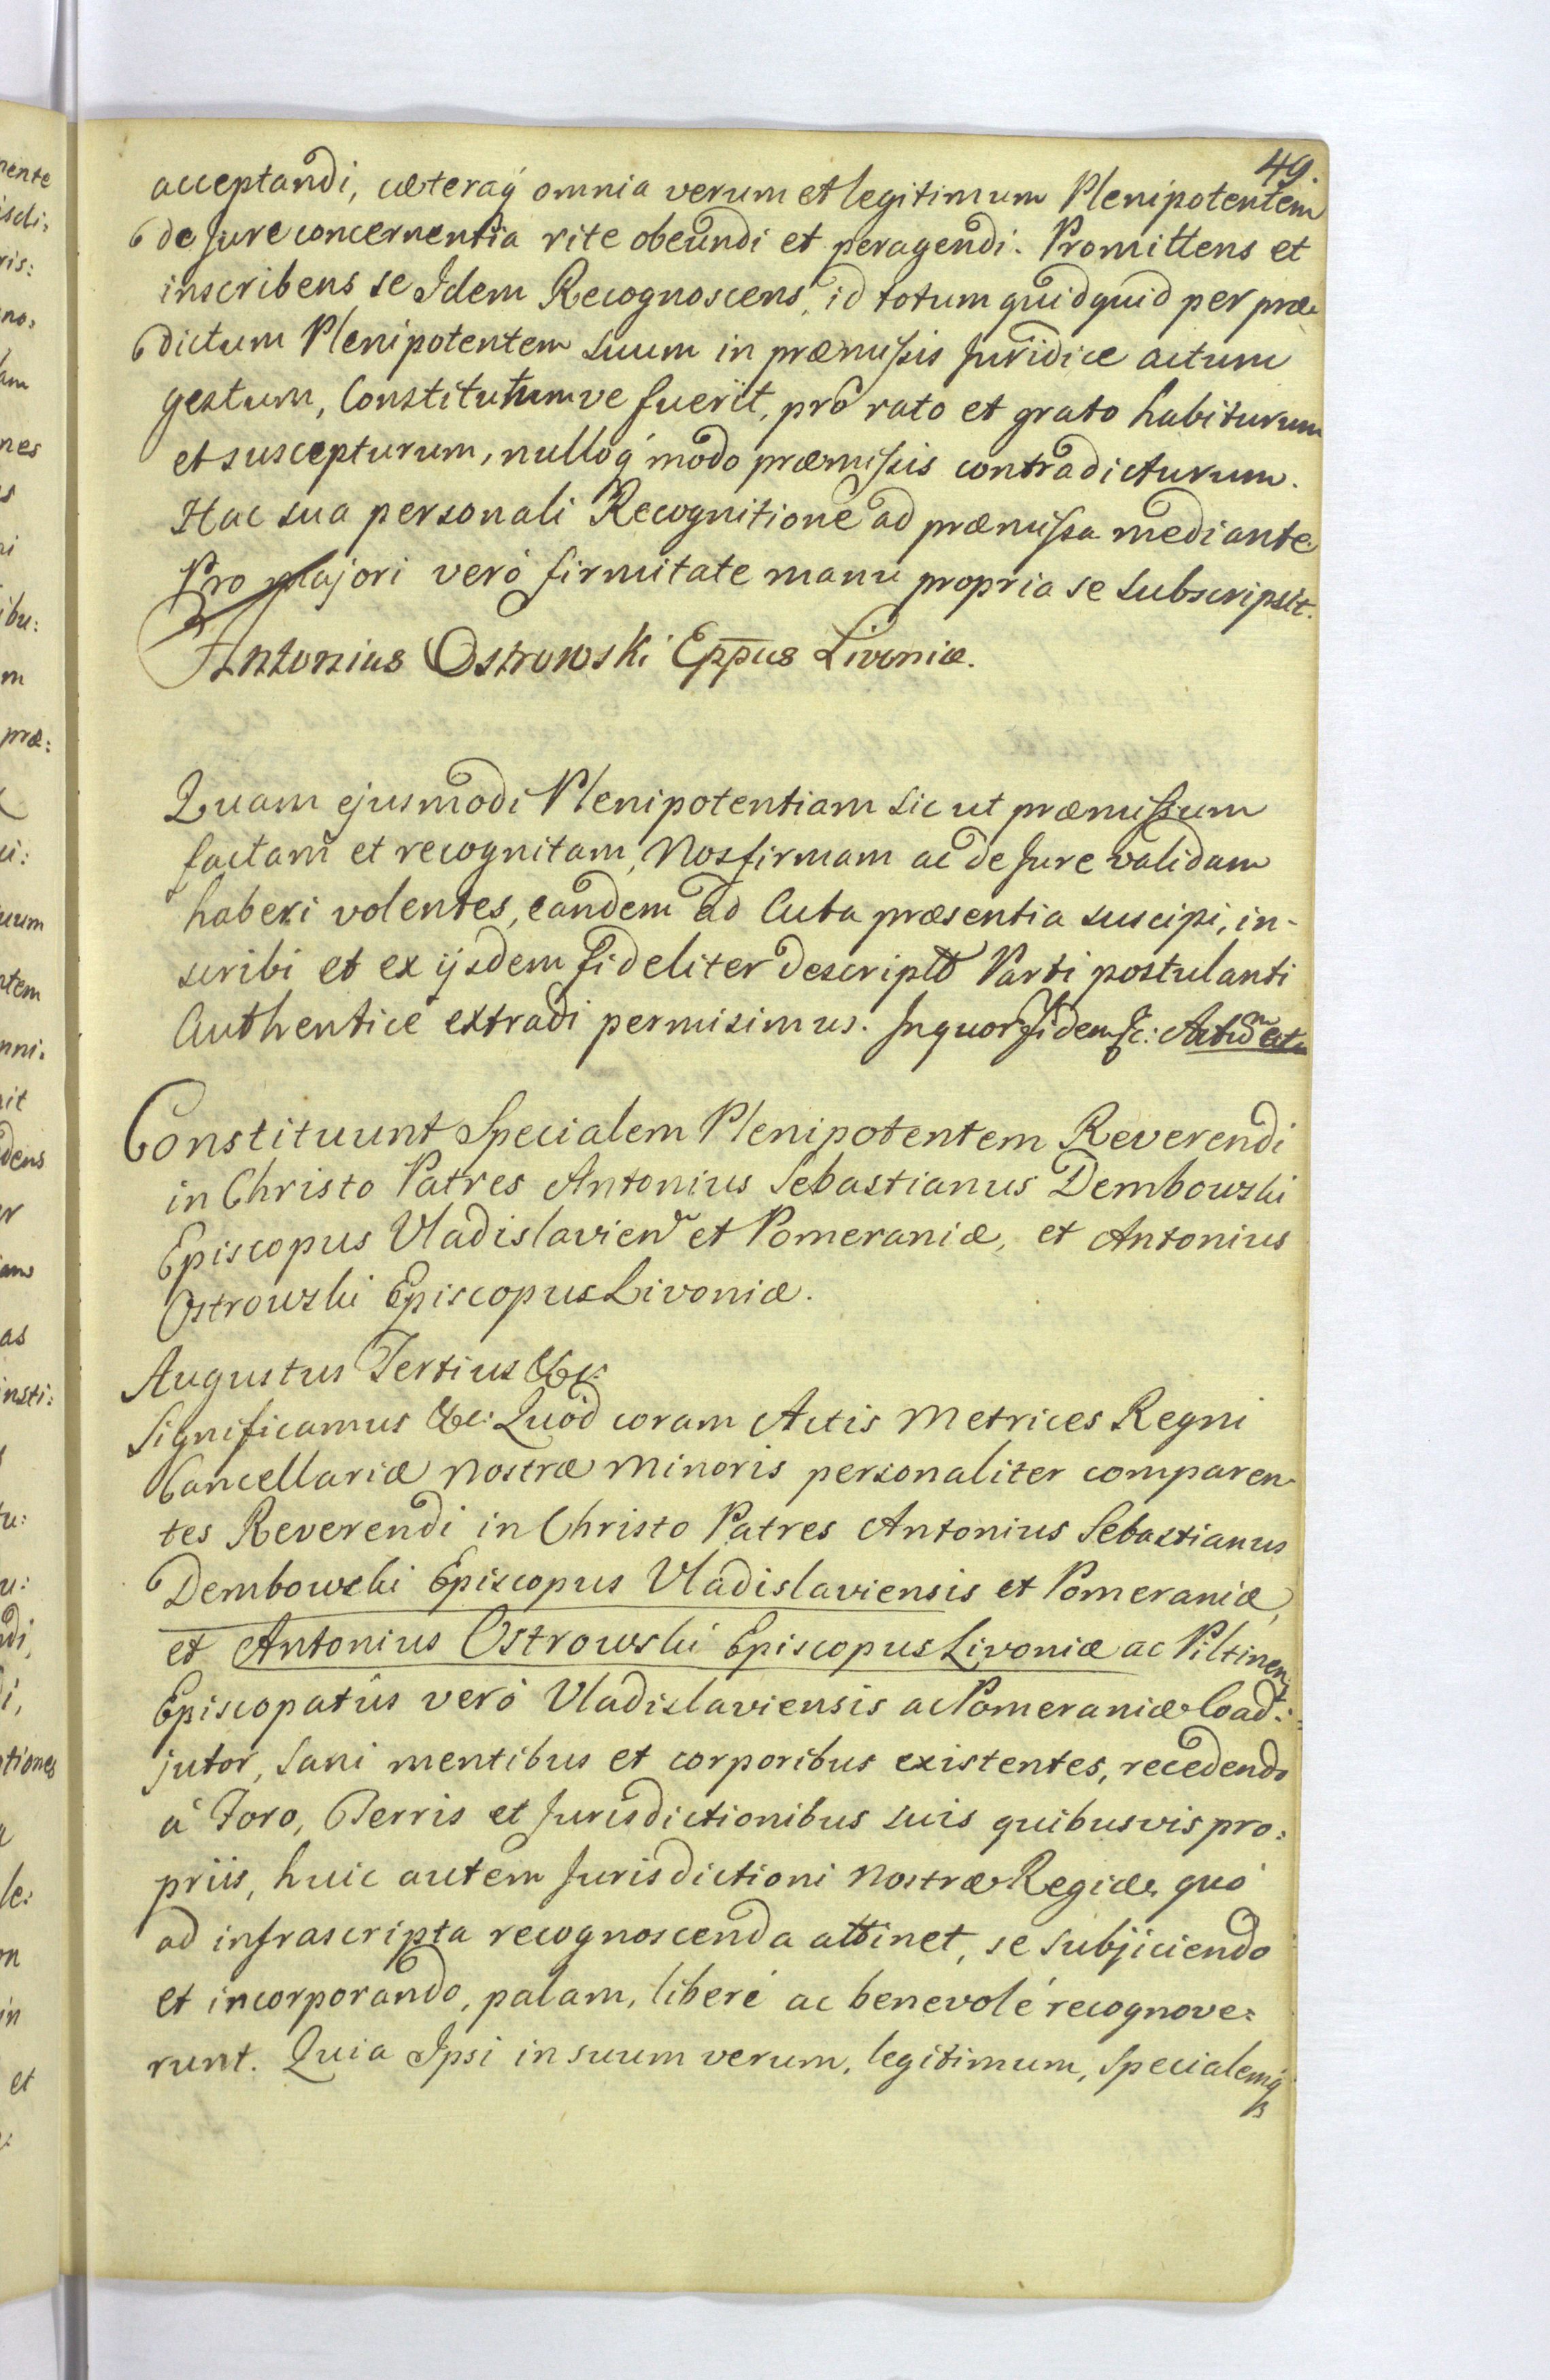 49.
acceptandi, cæteraq́ omnia verum et legitimum Plenipotentem
de Jure concernentia rite obeundi et peragendi. Promittens et
inscribens se Idem Recognoscens, id totum quidquid per præ:
dictum Plenipotentem suum in præmissis Juridice actum
gestum, Constitutumve fuerit, pro rato et grato habiturum
et suscepturum, nulloq́ modo præmissis contradicturum.
Hac sua personali Recognitione ad præmissa mediante
Pro majori veró firmitate manu propria se subscripsit.
Antonius Ostrowski Eppus Livoniæ.
Quam ejusmodi Plenipotentiam sic ut præmissum
factam et recognitam, Nos firmam ac de Jure validam
haberi volentes, eandem ad Acta præsentia suscipi, in-
scribi et ex ijsdem fideliter descriptã Parti postulanti
Authentice extradi permisimus. In quor fidem &c: Actum
Constituunt Specialem Plenipotentem Reverendi
in Christo Patres Antonius Sebastianus Dembowski
Episcopus Vladislavien et Pomeraniæ, et Antonius
Ostrowski Episcopus Livoniæ.
Augustus Tertius &c:
Significamus &c: Quod coram Actis Metrices Regni
Cancellariæ Nostræ Minoris personaliter comparen-
tes Reverendi in Christo Patres Antonius Sebastianus
Dembowski Episcopus Vladislaviensis et Pomeraniæ,
et Antonius Ostrowski Episcopus Livoniæ ac Piltinen
Episcopatûs veró Vladislaviensis ac Pomeraniæ Coad:
jutor, sani mentibus et corporibus existentes, recedendo
á Foro, Terris et Jurisdictionibus suis quibusvis pro:
priis, huic autem Jurisdictioni Nostræ Regiæ, quó
ad infrascripta recognoscenda attinet, se subjiciendo
et incorporando, palam, liberé ac benevolé recognove:
runt. Quia Ipsi in suum verum, legitimum, Specialemq́